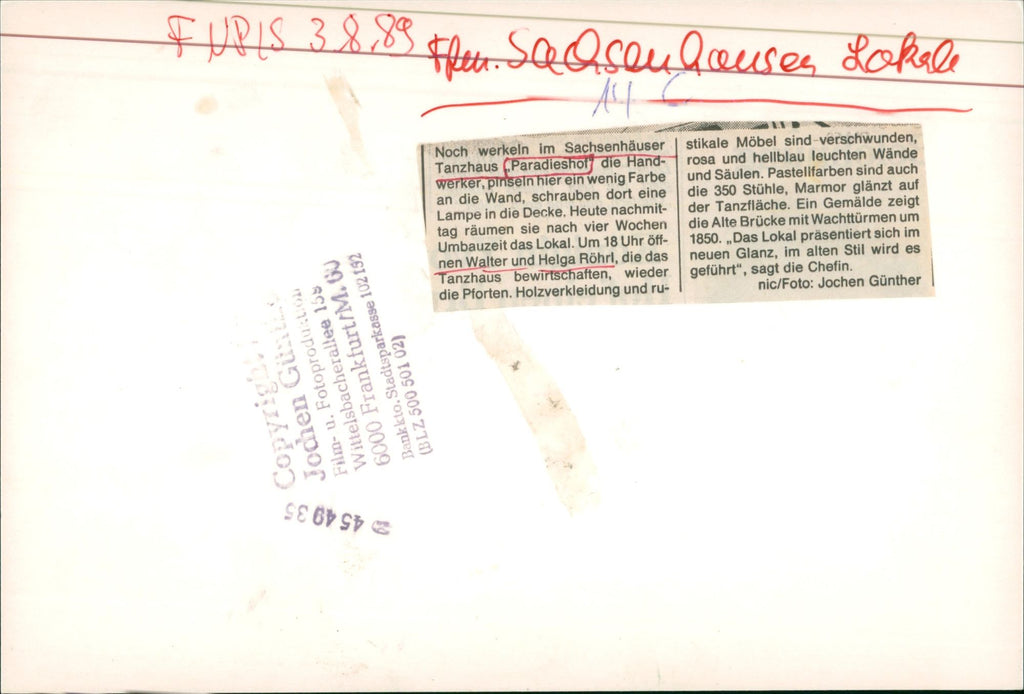 FNP/S 3.8.89
Ffm. Sachsenhausen Lokale
Noch werkeln im Sachsenhäuser
Tanzhaus „Paradieshof“ die Hand-
werker, pinseln hier ein wenig Farbe
an die Wand, schrauben dort eine
Lampe in die Decke. Heute nachmit-
tag räumen sie nach vier Wochen
Umbauzeit das Lokal. Um 18 Uhr öff-
nen Walter und Helga Röhrl, die das
Tanzhaus bewirtschaften, wieder
die Pforten. Holzverkleidung und ru-
stikale Möbel sind verschwunden,
rosa und hellblau leuchten Wände
und Säulen. Pastellfarben sind auch
die 350 Stühle, Marmor glänzt auf
der Tanzfläche. Ein Gemälde zeigt
die Alte Brücke mit Wachttürmen um
1850. „Das Lokal präsentiert sich im
neuen Glanz, im alten Stil wird es
geführt“, sagt die Chefin.
nic/Foto: Jochen Günther
Copyright
Jochen Günther
Film- u. Fotoproduktion
Wittelsbacherallee
6000 Frankfurt/M. 60
Bankkto. Stadtsparkasse 102192
(BLZ 500 501 02)
45 49 35